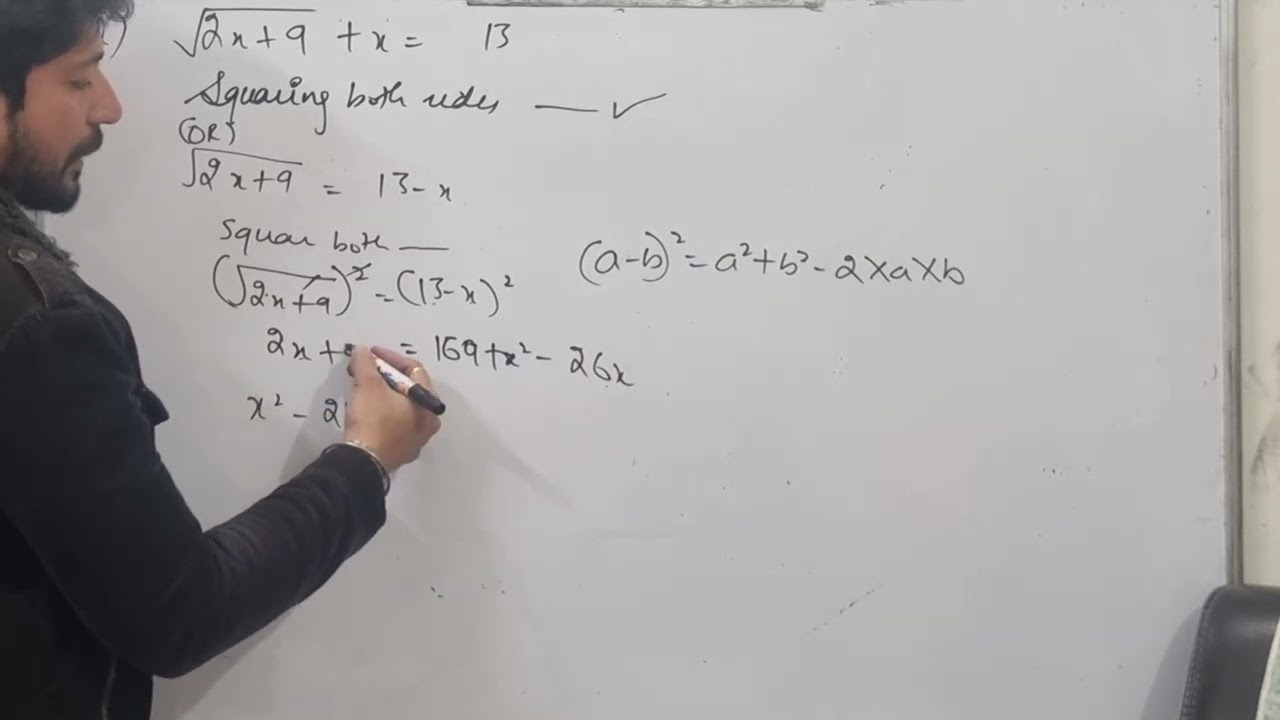 √2x+9 + x = 13
Squaring both sides — ✓
(OR)
√2x+9 = 13-x
Squar both —
(√2x+9)² = (13-x)²
(a-b)² = a²+b²-2×a×b
2x+ = 169+x²-26x
x² - 2